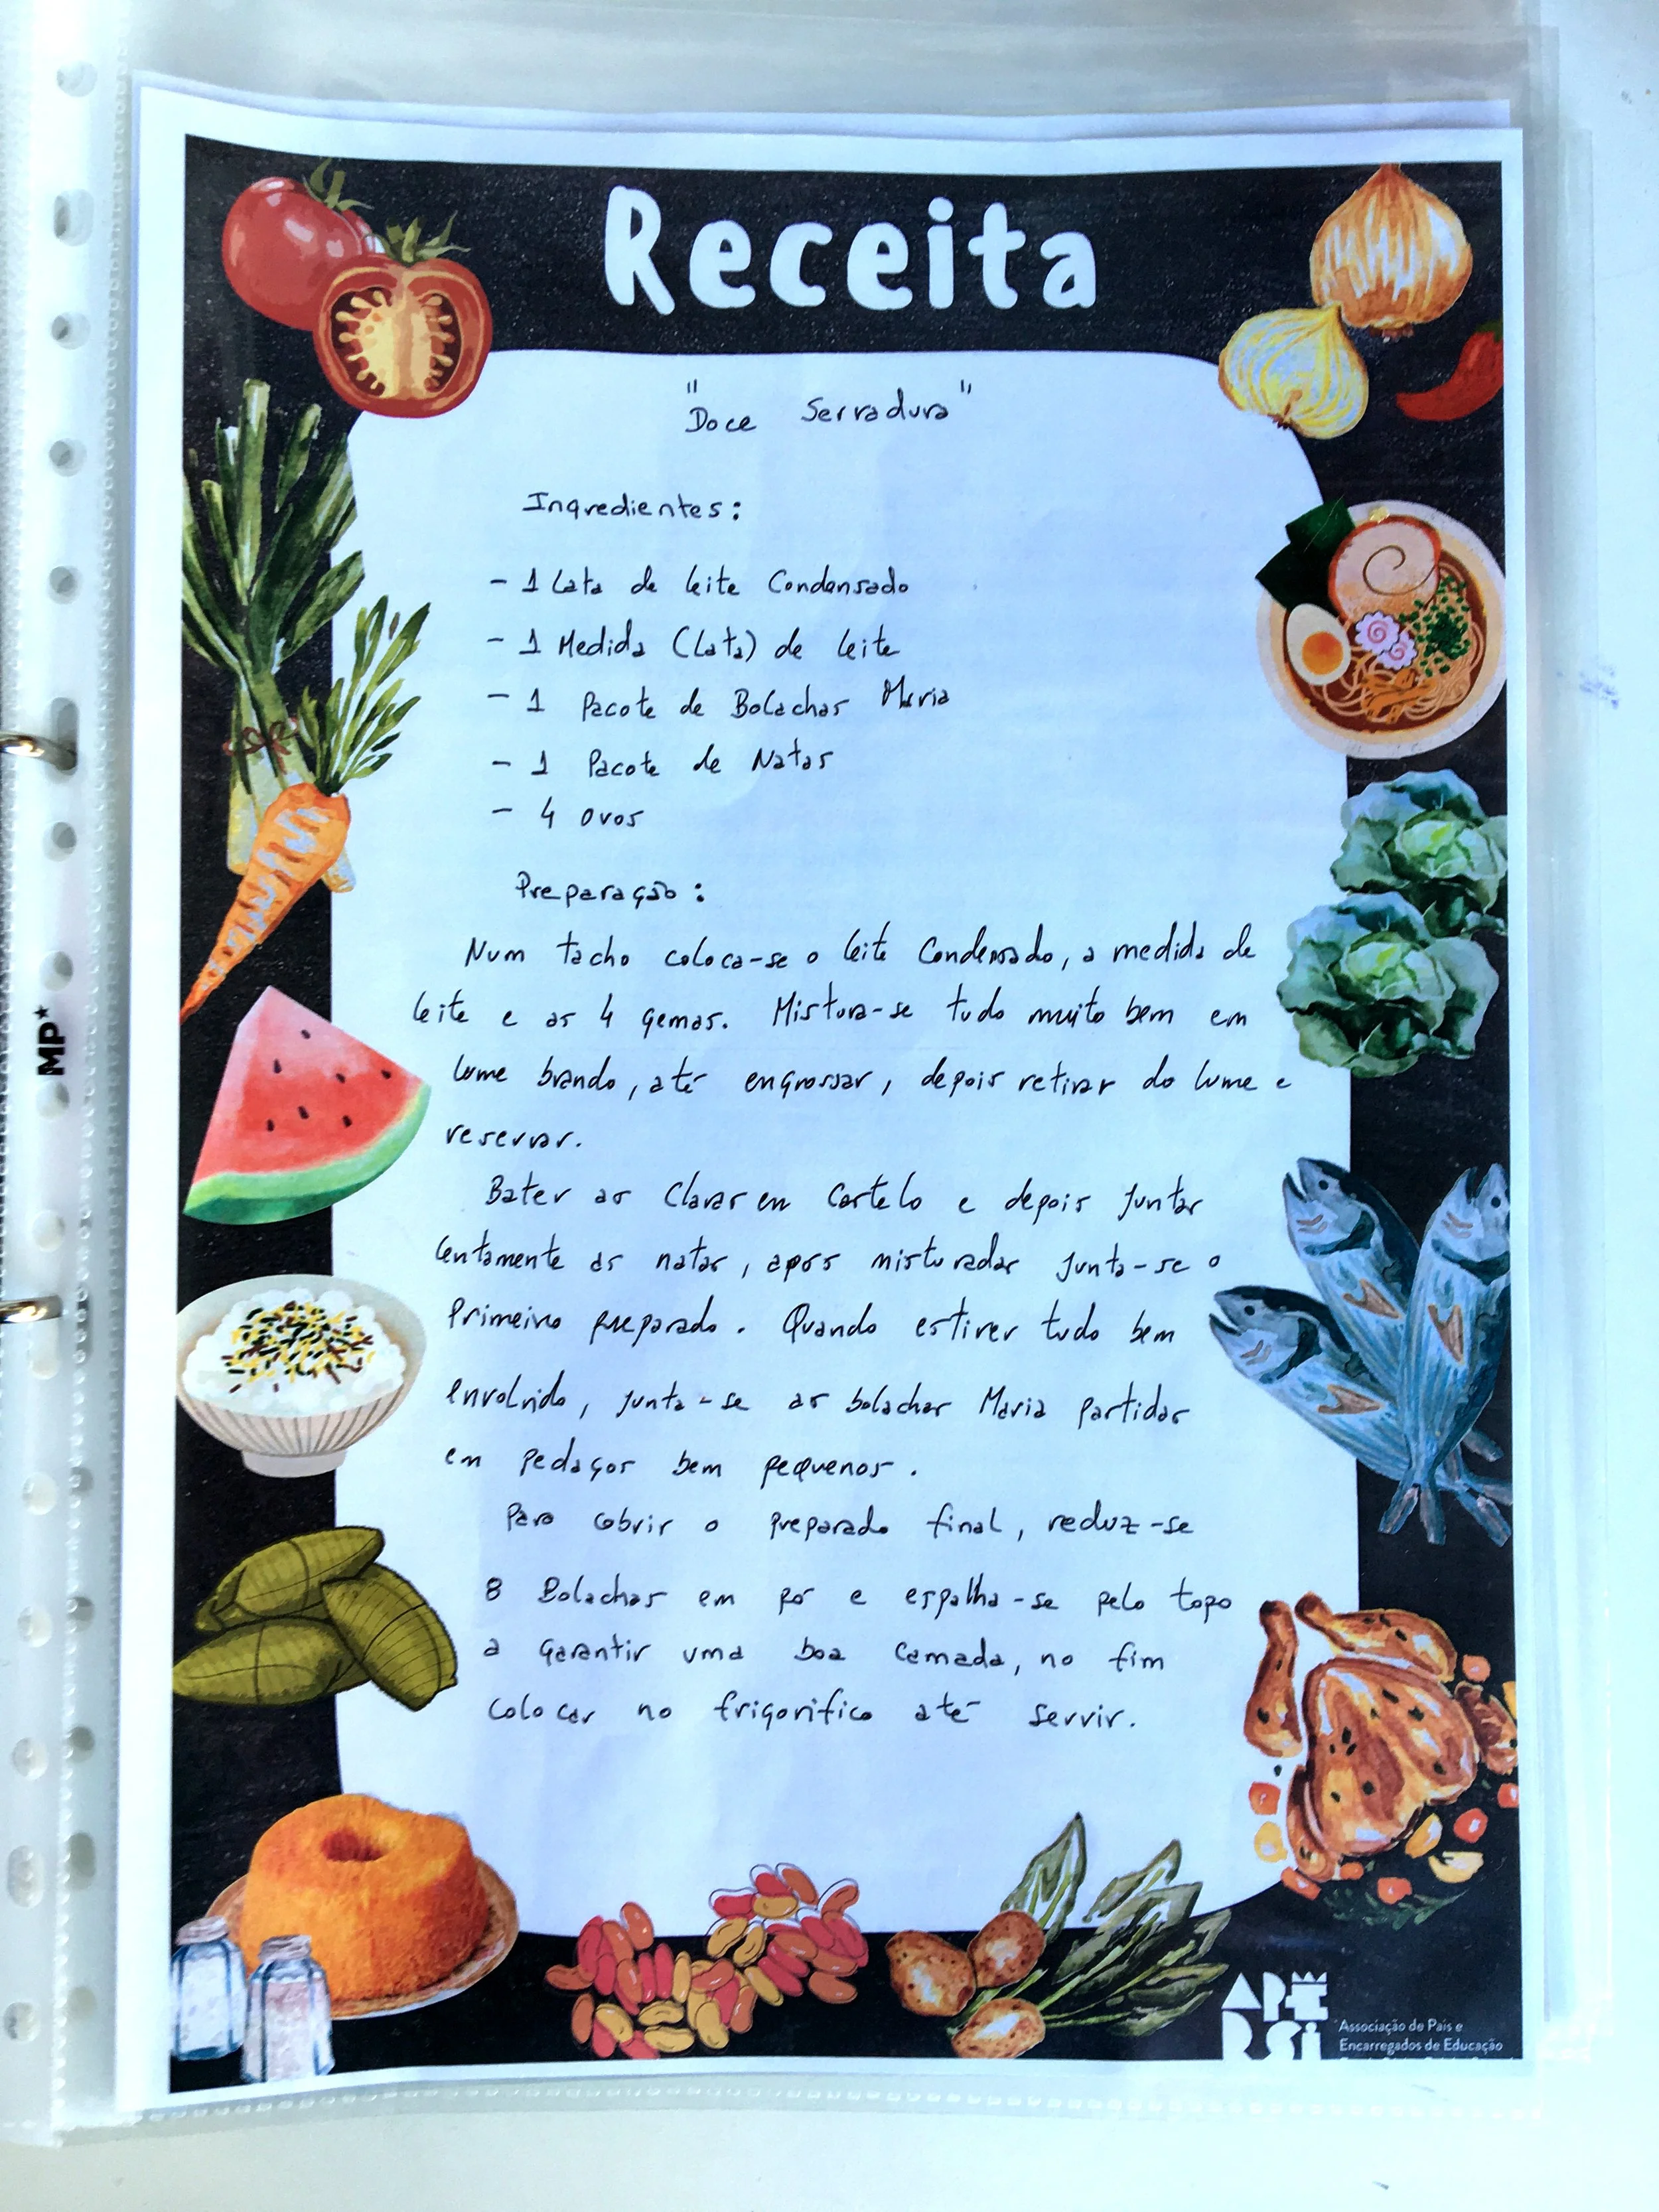 Receita
"Doce Serradura"
Ingredientes:
- 1 Lata de leite Condensado
- 1 Medida (Lata) de leite
- 1 Pacote de Bolachas Maria
- 1 Pacote de Natas
- 4 ovos
Preparação:
Num tacho coloca-se o leite Condensado, a medida de
leite e as 4 gemas. Mistura-se tudo muito bem em
lume brando, até engrossar, depois retirar do lume e
reservar.
Bater as Claras em Castelo e depois juntar
lentamente as natas, após misturadas junta-se o
Primeiro preparado. Quando estiver tudo bem
envolvido, junta-se as bolachas Maria partidas
em pedaços bem pequenos.
Para cobrir o preparado final, reduz-se
8 Bolachas em pó e espalha-se pelo topo
a garantir uma boa camada, no fim
colocar no frigorífico até servir.
MP*
Associação de Pais e
Encarregados de Educação